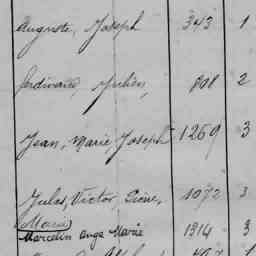 Auguste, Joseph 343 1
Ferdinand, Julien, 808 2
Jean, Marie Joseph 1269 3
Jules, Victor, Pierre, 1072 3
Marie
Marcelin Ange Marie 1314 3